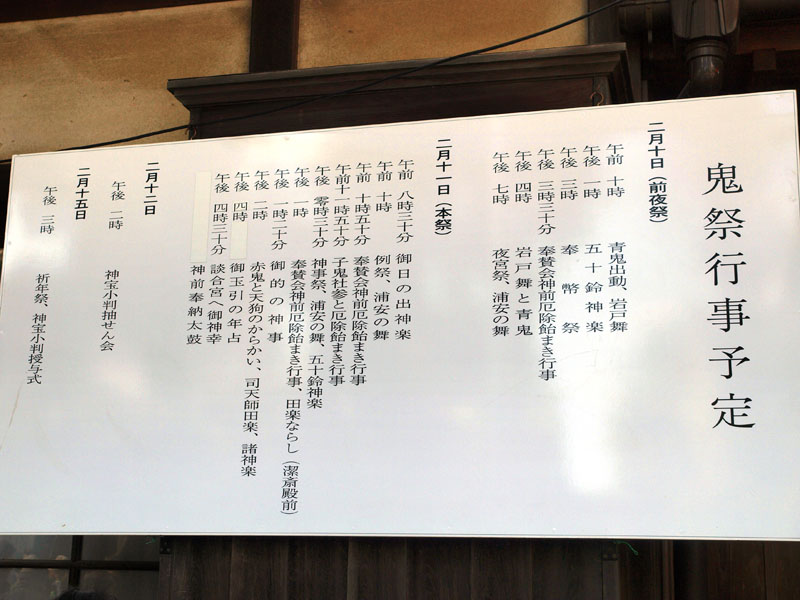 鬼祭行事予定
二月十日（前夜祭）
午前 十時 青鬼出動、岩戸舞
午後 一時 五十鈴神楽
午後 三時 奉幣祭
午後 三時三十分 奉賛会神前厄除飴まき行事
午後 四時 岩戸舞と青鬼
午後 七時 夜宮祭、浦安の舞
二月十一日（本祭）
午前 八時三十分 御日の出神楽
午前 十時 例祭、浦安の舞
午前 十時五十分 奉賛会神前厄除飴まき行事
午前十一時五十分 子鬼社参と厄除飴まき行事
午後 零時三十分 神事祭、浦安の舞、五十鈴神楽
午後 一時 奉賛会神前厄除飴まき行事、田楽ならし（潔斎殿前）
午後 一時二十分 御的の神事
午後 二時 赤鬼と天狗のからかい、司天師田楽、諸神楽
午後 四時 御玉引の年占
午後 四時三十分 談合宮へ御神幸
神前奉納太鼓
二月十二日
午後 二時 神宝小判抽せん会
二月十五日
午後 三時 祈年祭、神宝小判授与式